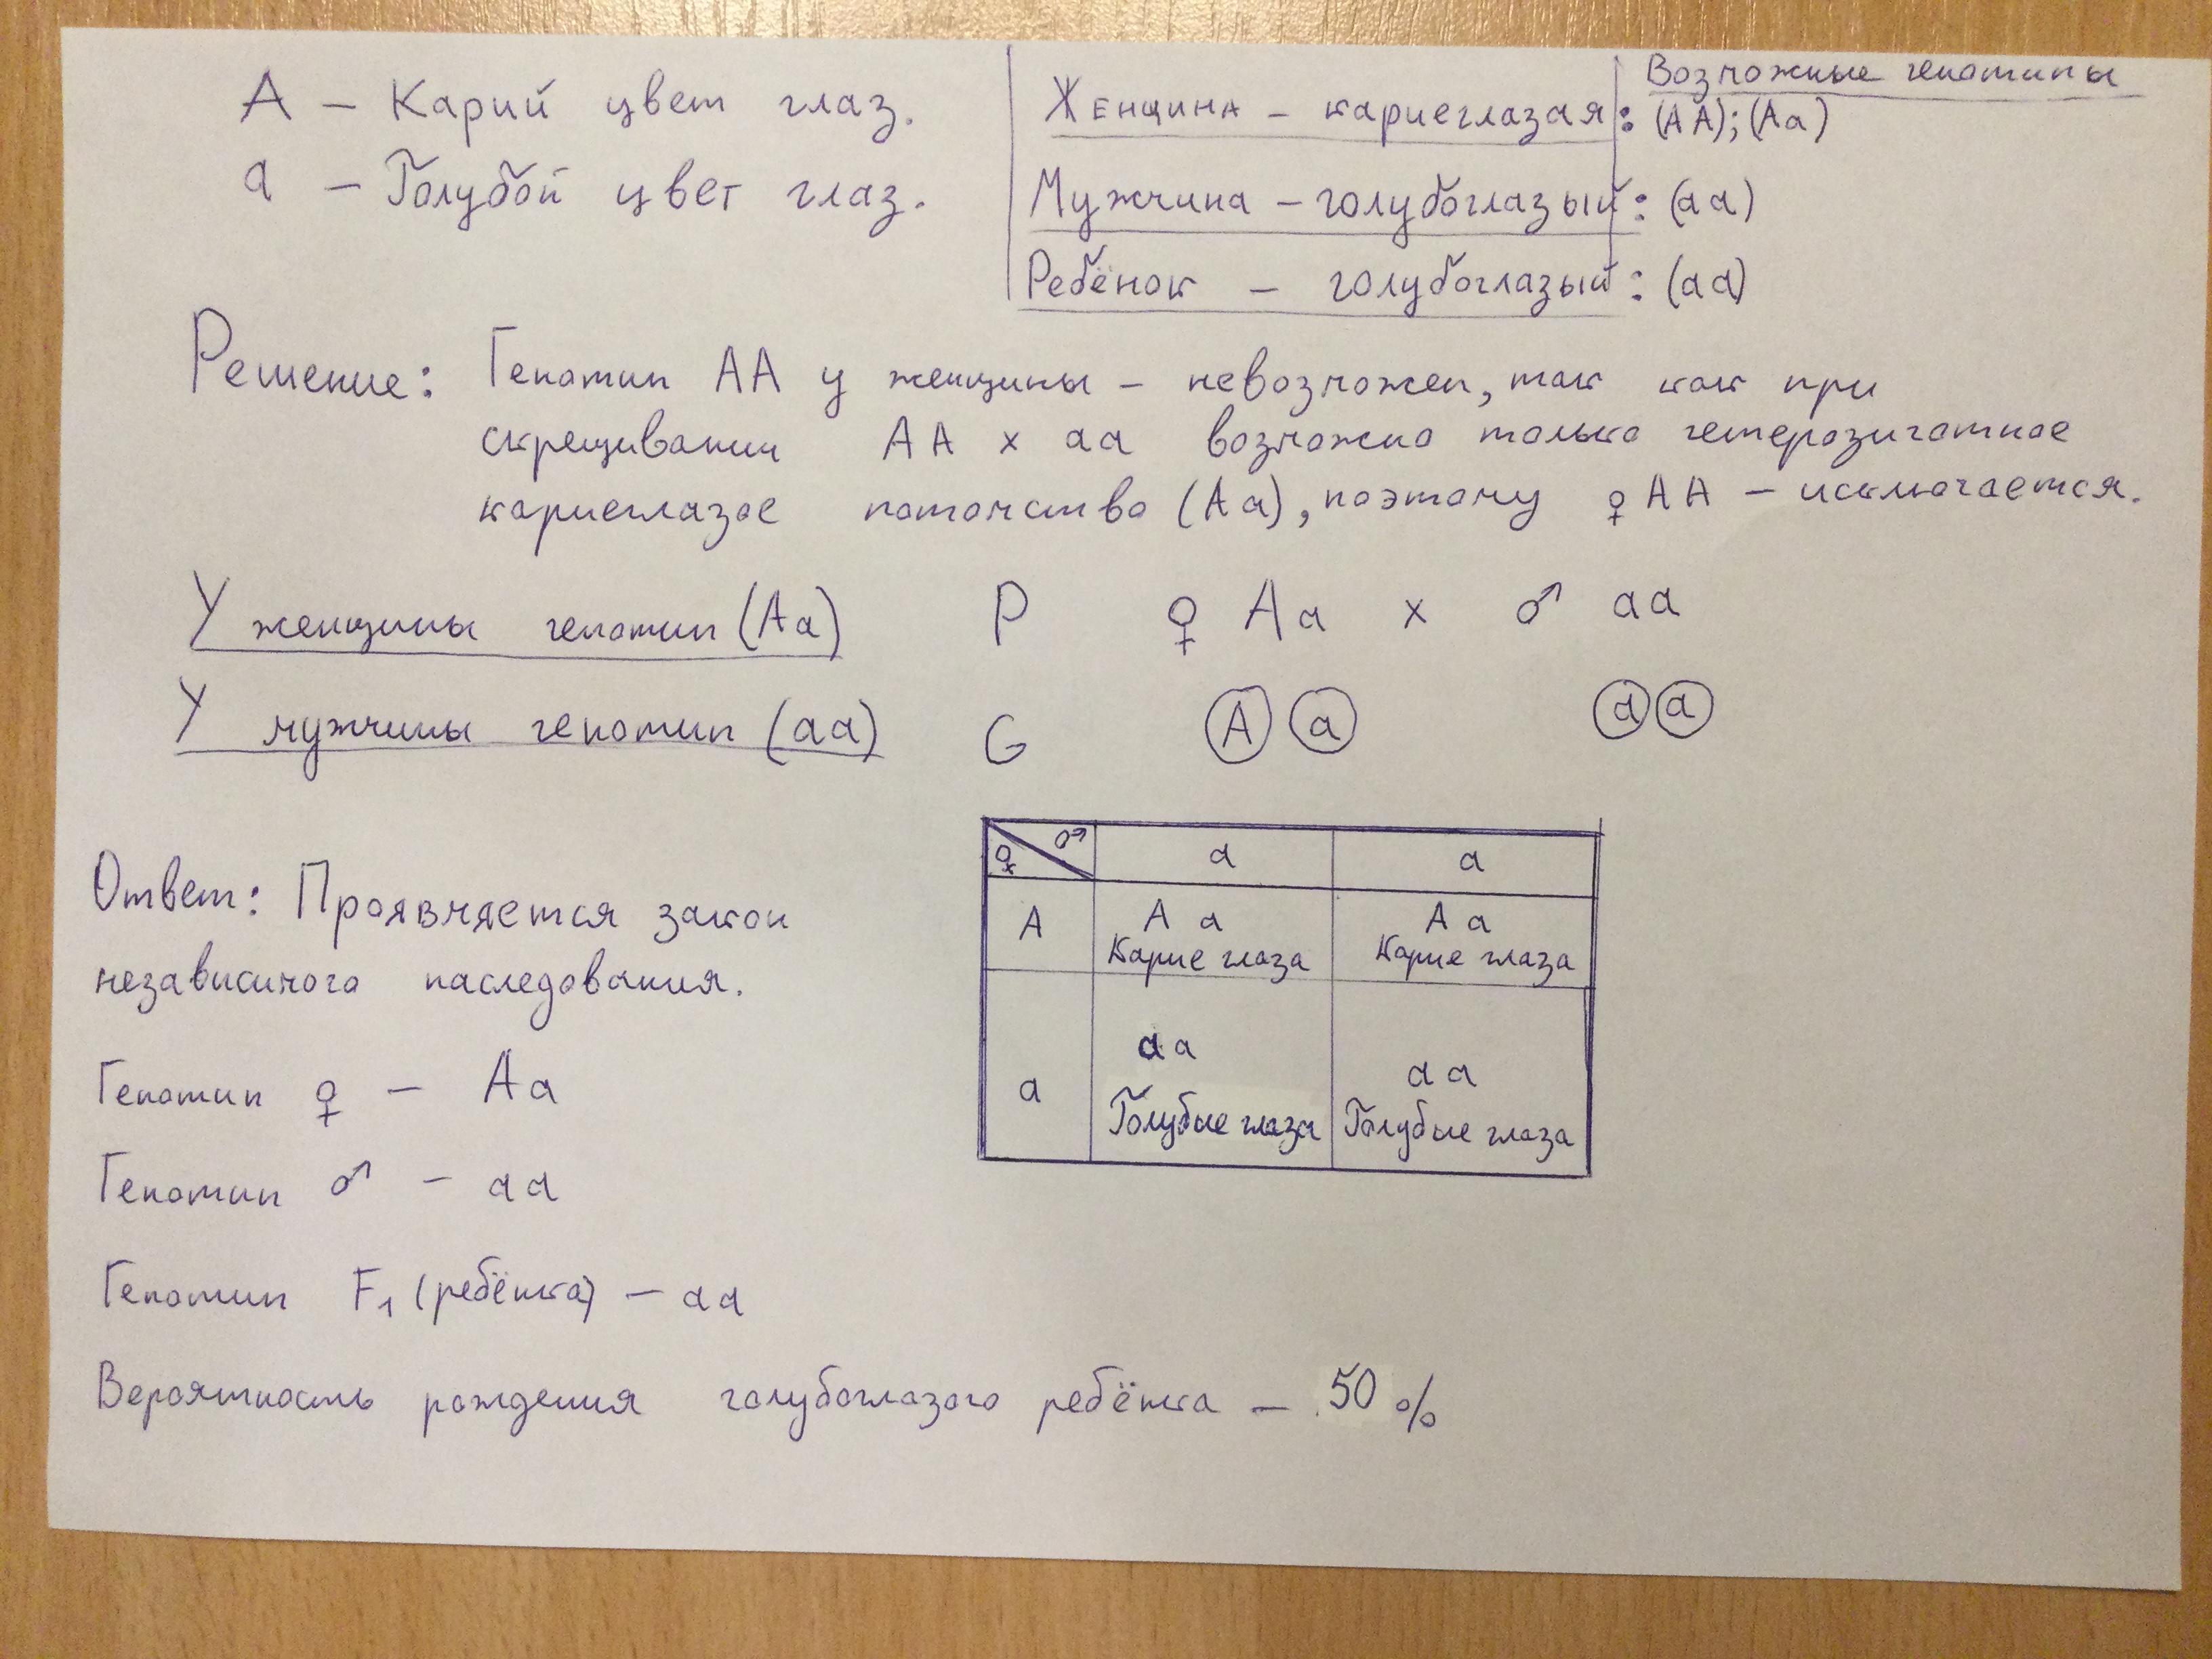 А – Карий цвет глаз.
а – Голубой цвет глаз.
Возможные генотипы
Женщина – кариеглазая: (АА); (Аа)
Мужчина – голубоглазый: (аа)
Ребёнок – голубоглазый: (аа)
Решение: Генотип АА у женщины – невозможен, так как при
скрещивании АА х аа возможно только гетерозиготное
кариеглазое потомство (Аа), поэтому ♀ АА – исключается.
У женщины генотип (Аа)
У мужчины генотип (аа)
P ♀ Аа х ♂ аа
G А а а а
♀ ♂ а а
А Аа Аа
Карие глаза Карие глаза
а аа аа
Голубые глаза Голубые глаза
Ответ: Проявляется закон
независимого наследования.
Генотип ♀ – Аа
Генотип ♂ – аа
Генотип F₁ (ребёнка) – аа
Вероятность рождения голубоглазого ребёнка – 50 %